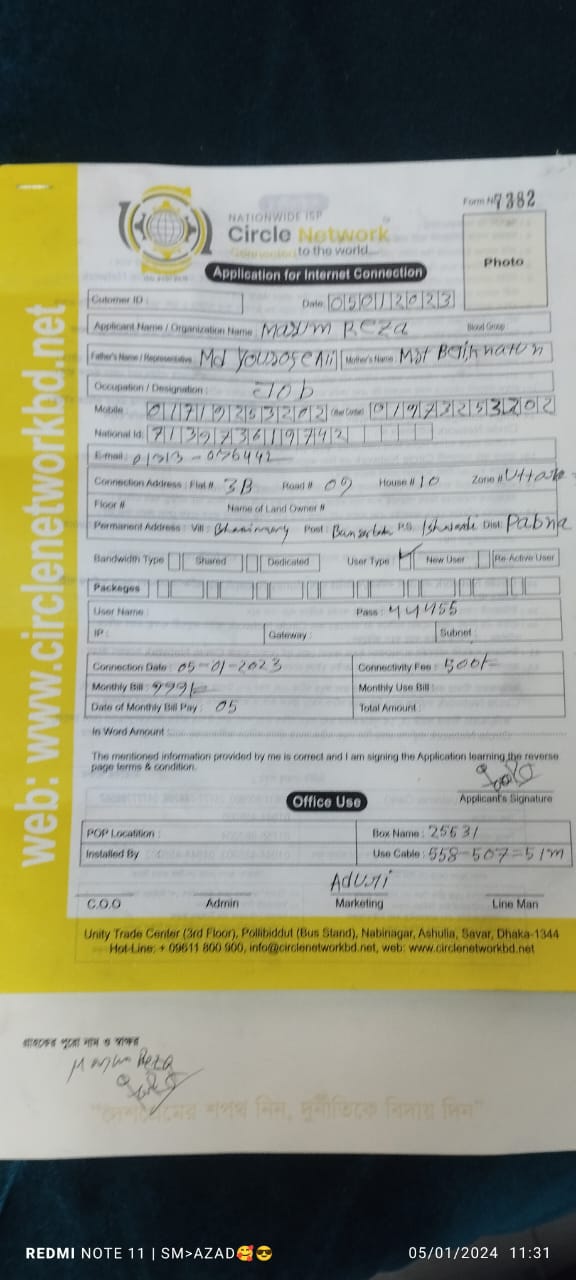 Form № 7382
NATIONWIDE ISP
Circle Network
Connected to the world...
Photo
Application for Internet Connection
Cutomer ID : Date 05012023
Applicant Name / Organization Name : Masum Reza Blood Group
Father's Name / Representative Md Yousof Ali Mother's Name Mst
Occupation / Designation : Job
Mobile 01719253202 01973253202
National Id: 7139736119742
E-mail :
Connection Address : Flat # 3B Road # 09 House # 10 Zone #
Floor # Name of Land Owner #
Permanent Address : Vill : Post : P.S. Dist: Pabna
Bandwidth Type Shared Dedicated User Type : New User Re-Active User
Packages
User Name : Pass : 44455
IP : Gateway : Subnet
Connection Date : 05-01-2023 Connectivity Fee : 500/-
Monthly Bill : 999/- Monthly Use Bill :
Date of Monthly Bill Pay : 05 Total Amount :
In Word Amount :
The mentioned information provided by me is correct and I am signing the Application learning the reverse
page terms & condition.
Applicant's Signature
Office Use
POP Locatition : Box Name : 25531
Installed By Use Cable : 558-507=51m
Aduri
C.O.O Admin Marketing Line Man
Unity Trade Center (3rd Floor), Pollibiddut (Bus Stand), Nabinagar, Ashulia, Savar, Dhaka-1344
Hot-Line: + 09611 800 900, info@circlenetworkbd.net, web: www.circlenetworkbd.net
web: www.circlenetworkbd.net
গ্রাহকের পুরো নাম ও স্বাক্ষর
Masum Reza
"দেশপ্রেমের শপথ নিন, দুর্নীতিকে বিদায় দিন"
REDMI NOTE 11 | SM>AZAD🥰😎 05/01/2024 11:31